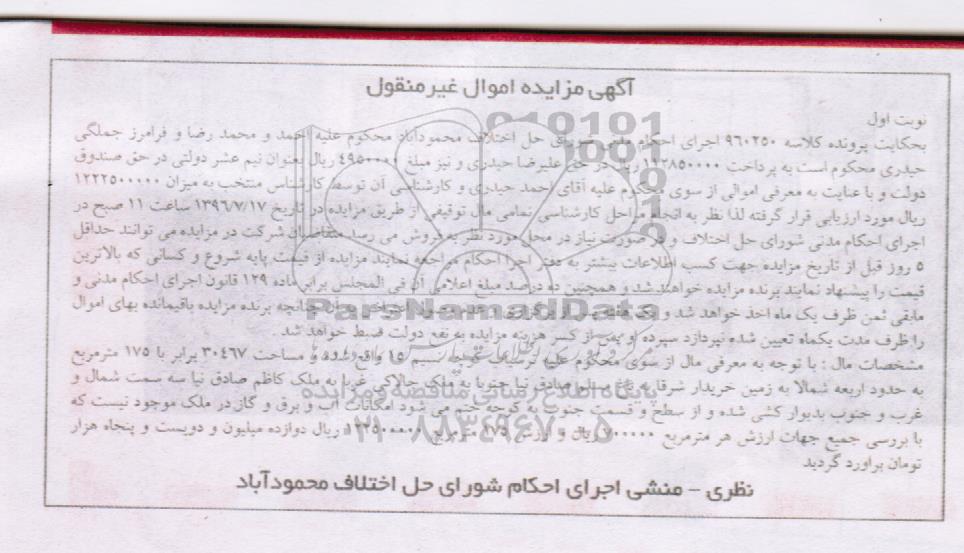 آگهی مزایده اموال غیر منقول
نوبت اول
بحکایت پرونده کلاسه ۹۶۰۲۵۰ اجرای احکام مدنی شورای حل اختلاف محمودآباد محکوم علیه احمد و محمد رضا و فرامرز جملگی
حیدری محکوم است به پرداخت ۱۱۲۸۵۰۰۰۰ ریال در حق علیرضا حیدری و نیز مبلغ ۴۹۵۰۰۰۰ ریال بعنوان نیم عشر دولتی در حق صندوق
دولت و با عنایت به معرفی اموالی از سوی محکوم علیه آقای احمد حیدری و کارشناسی آن توسط کارشناس منتخب به میزان ۱۲۲۲۵۰۰۰۰۰
ریال مورد ارزیابی قرار گرفته لذا نظر به انجام مراحل کارشناسی تمامی مال توقیفی از طریق مزایده در تاریخ ۱۳۹۶/۷/۱۷ ساعت ۱۱ صبح در
اجرای احکام مدنی شورای حل اختلاف و در صورت نیاز در محل مورد نظر به فروش می رسد متقاضیان شرکت در مزایده می توانند حداقل
۵ روز قبل از تاریخ مزایده جهت کسب اطلاعات بیشتر به دفتر اجرا احکام مراجعه نمایند مزایده از قیمت پایه شروع و کسانی که بالاترین
قیمت را پیشنهاد نمایند برنده مزایده خواهند شد و همچنین ده درصد مبلغ اعلامی آن فی المجلس برابر ماده ۱۲۹ قانون اجرای احکام مدنی و
مابقی ثمن ظرف یک ماه اخذ خواهد شد و یک هفته پس از برگزاری چنانچه برنده مزایده باقیمانده بهای اموال
را ظرف مدت یکماه تعیین شده نپردازد سپرده او پس از کسر هزینه مزایده به نفع دولت ضبط خواهد شد.
مشخصات مال : با توجه به معرفی مال از سوی محکوم علیه کوچه نسیم ۱۵ واقع شده و مساحت ۳۰۴۶۷ برابر با ۱۷۵ مترمربع
به حدود اربعه شمالا به زمین خریدار شرقا به صادق نیا جنوبا به ملک چالاکی غربا به ملک کاظم صادق نیا سه سمت شمال و
غرب و جنوب بدیوار کشی شده و از سطح و قسمت جنوب به کوچه ختم می شود امکانات آب و برق و گاز در ملک موجود نیست که
با بررسی جمیع جهات ارزش هر مترمربع ریال و ارزش ۱۷۵ مترمربع ریال دوازده میلیون و دویست و پنجاه هزار
تومان براورد گردید
نظری - منشی اجرای احکام شورای حل اختلاف محمودآباد
ParsNamadData
پایگاه اطلاع رسانی مناقصه و مزایده
۰۲۱-۸۸۳۴۹۶۷۰-۵